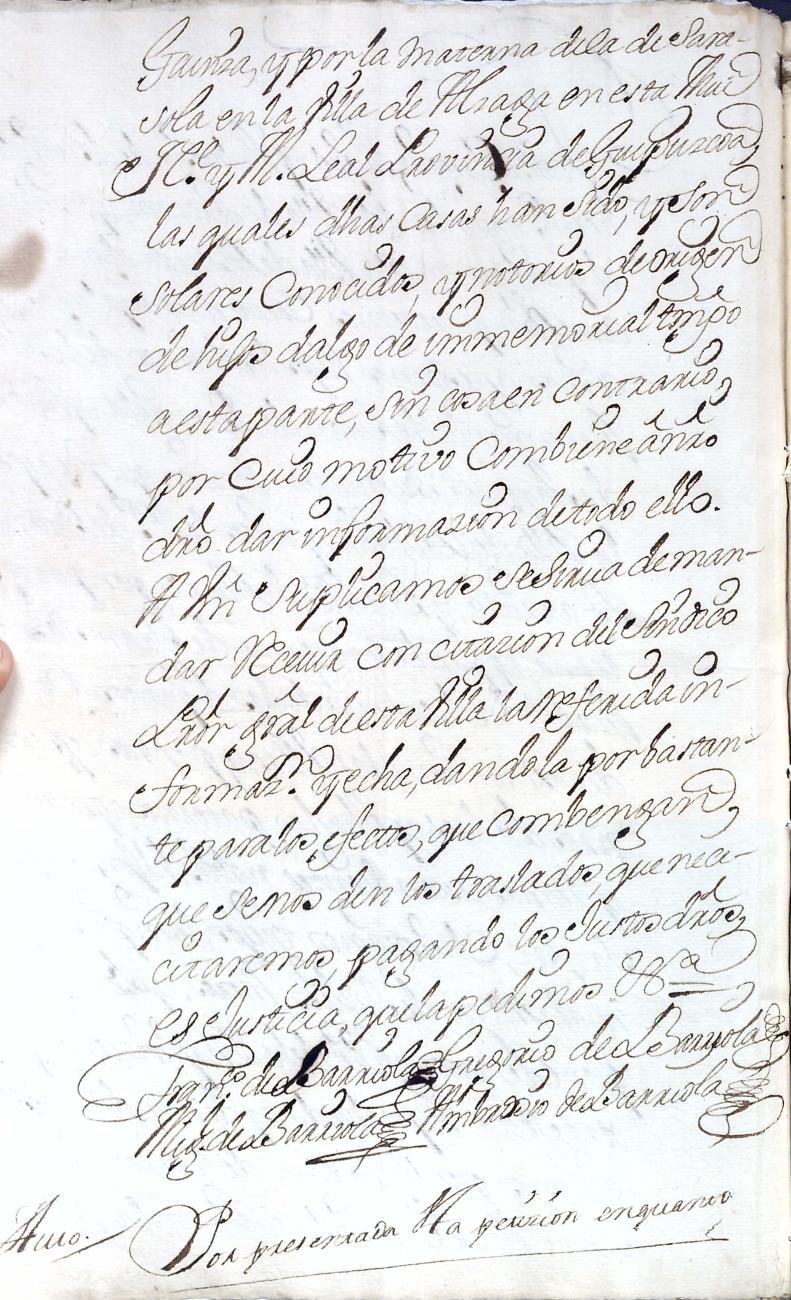 Gainza, y por la materna de la de Sara-
sola en la Villa de Alzaga en esta Mui
N.e y M. Leal Provincia de Guipuzcoa,
las quales dhas Casas han sido, y son
solares Conocidos, y notorios de origen
de hijos dalgo de immemorial tmpo
a esta parte, sin cosa en contrario,
por Cuio motivo Combiene à nro
dro dar informazion de todo ello.
A Vm Suplicamos se sirua de man-
dar Receuir con citazion del Sindico
Pror gral de esta Villa la referida in-
formaz.n y echa, dandola por bastan-
te para los efectos, que combengan,
que se nos den los traslados, que nece-
citaremos, pagando los Justos dros,
es Justicia, que la pedimos &.a
Fran.co de Barriola Gregorio de Barriola
Mig. de Barriola Ambrosio de Barriola
Auto. Por presentada la petizion en quanto